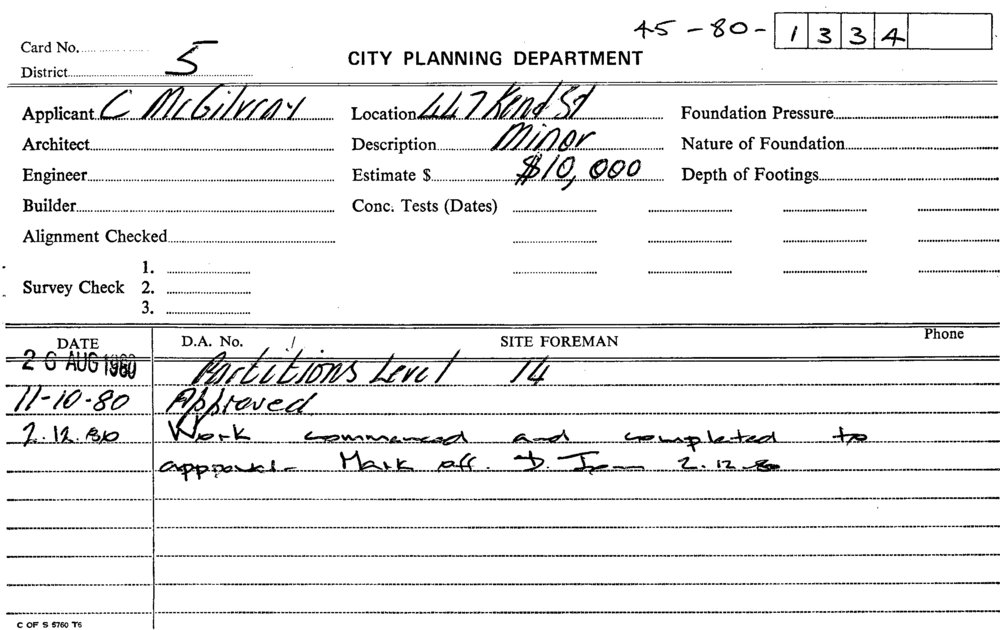 45-80-1334
Card No.
CITY PLANNING DEPARTMENT
District 5
Applicant C McGilvray Location 447 Kend St Foundation Pressure
Architect Description Minor Nature of Foundation
Engineer Estimate $ $10,000 Depth of Footings
Builder Conc. Tests (Dates)
Alignment Checked
1.
Survey Check 2.
3.
DATE D.A. No. SITE FOREMAN Phone
26 AUG 1980 Partitions Level 14
11-10-80 Approved
2.12.80 Work commenced and completed to
approval- Mark off. D. 2.12.80
C OF S 5760 T6